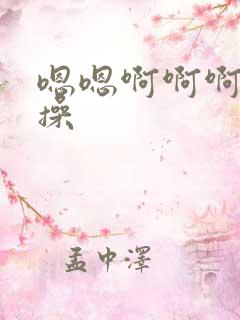 嗯嗯啊啊啊
操
孟中澤